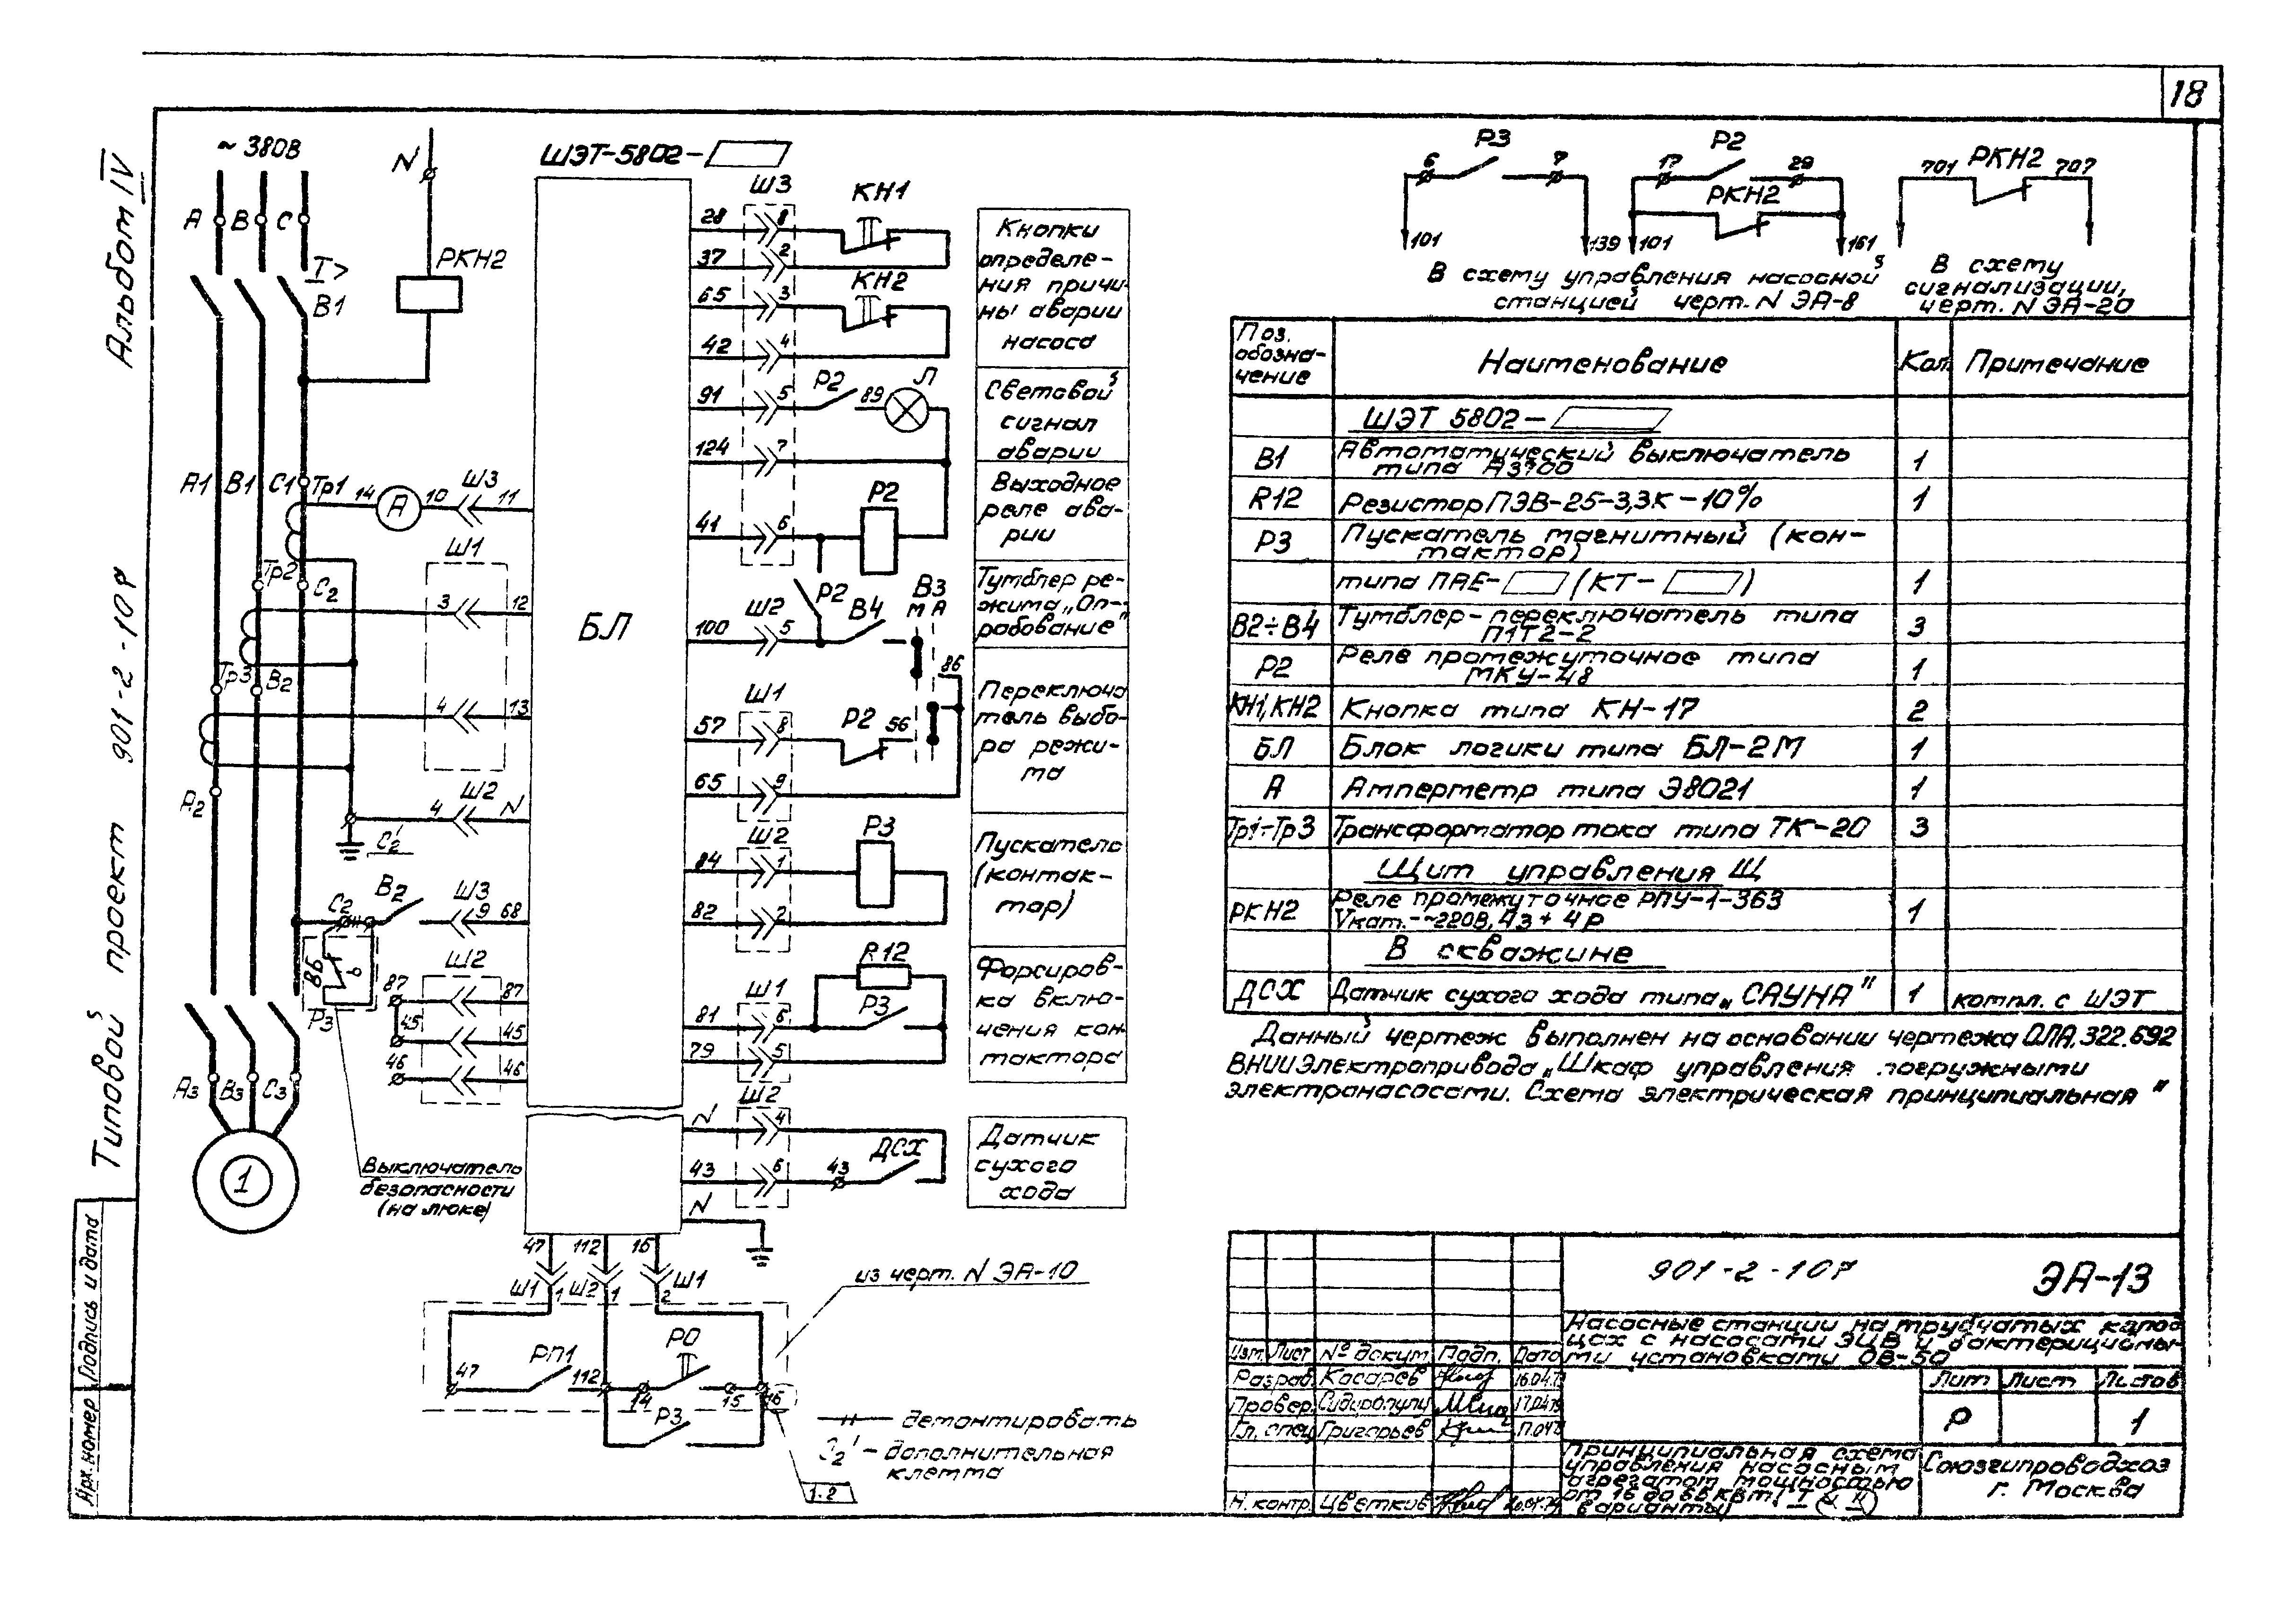 18
Альбом IV
Типовой проект 901-2-107
Подпись и дата
Арх. номер
~ 380В
N
ШЭТ-5802-
А В С
I>
В1
РКН2
А1 В1 С1 Тр1 14 А 10 Ш3 11
Ш1
Тр2 С2
3 12
Тр3 В2
4 13
А2
Ш2
4 N
С2'
С2 В2 Ш3
9 68
ВБ
Р3
Ш2
87 87
45 45
46 46
А3 В3 С3
1
Выключатель
безопасности
(на люке)
БЛ
Ш3
28 8 КН1
37 2
КН2
65 3
42 4
91 5 Р2 89 Л
124 7
Р2
41 6
Р2
Ш2 В4 В3
М А
100 5
86
Ш1
57 8 Р2 56
65 9
Ш2 Р3
84 1
82 2
R12
Ш1
81 6 Р3
79 5
Ш2
N 4
43 6 43 ДСХ
N
47 112 16
Ш1 1 Ш2 1 Ш1 2
из черт. N ЭА-10
47 РП1 112 14 РО 15 16
Р3
демонтировать
С2' – дополнительная
клемма
1-2
Кнопки
определе-
ния причи-
ны аварии
насоса
Световой
сигнал
аварии
Выходное
реле ава-
рии
Тумблер ре-
жима „Оп-
робование"
Переключа
тель выбо-
ра режи-
ма
Пускатель
(контак-
тор)
Форсиров-
ка вклю-
чения кон-
тактора
Датчик
сухого
хода
6 Р3 7
17 Р2 29
РКН2
701 РКН2 707
101 139 101 161
В схему управления насосной
станцией черт. N ЭА-8
В схему
сигнализации,
черт. N ЭА-20
Поз.
обозна-
чение
Наименование
Кол.
Примечание
ШЭТ 5802-
В1 Автоматический выключатель
типа А3700 1
R12 Резистор ПЭВ-25-3,3К-10% 1
Р3 Пускатель магнитный (кон-
тактор)
типа ПАЕ- (КТ- ) 1
В2÷В4 Тумблер-переключатель типа
П1Т2-2 3
Р2 Реле промежуточное типа
МКУ-48 1
КН1, КН2 Кнопка типа КН-17 2
БЛ Блок логики типа БЛ-2М 1
А Амперметр типа Э8021 1
Тр1-Тр3 Трансформатор тока типа ТК-20 3
Щит управления Щ
РКН2 Реле промежуточное РПУ-1-363
Vкат.-~220В, 4з + 4р 1
В скважине
ДСХ Датчик сухого хода типа „САУНА" 1 компл. с ШЭТ
Данный чертеж выполнен на основании чертежа ОЛА.322.692
ВНИИЭлектропривода „Шкаф управления погружными
электронасосами. Схема электрическая принципиальная"
901-2-107 ЭА-13
Насосные станции на трубчатых колод
цах с насосами ЭЦВ и бактерицидны-
ми установками ОВ-50
Изм. Лист № докум. Подп. Дата
Разраб. Косарев
Провер. Сидиропуло
Гл. спец Григорьев
Н. контр. Цветков
Лит Лист Листов
Р 1
Принципиальная схема
управления насосным
агрегатом мощностью
от 16 до 65 квт. ( I и II
варианты)
Союзгипроводхоз
г. Москва